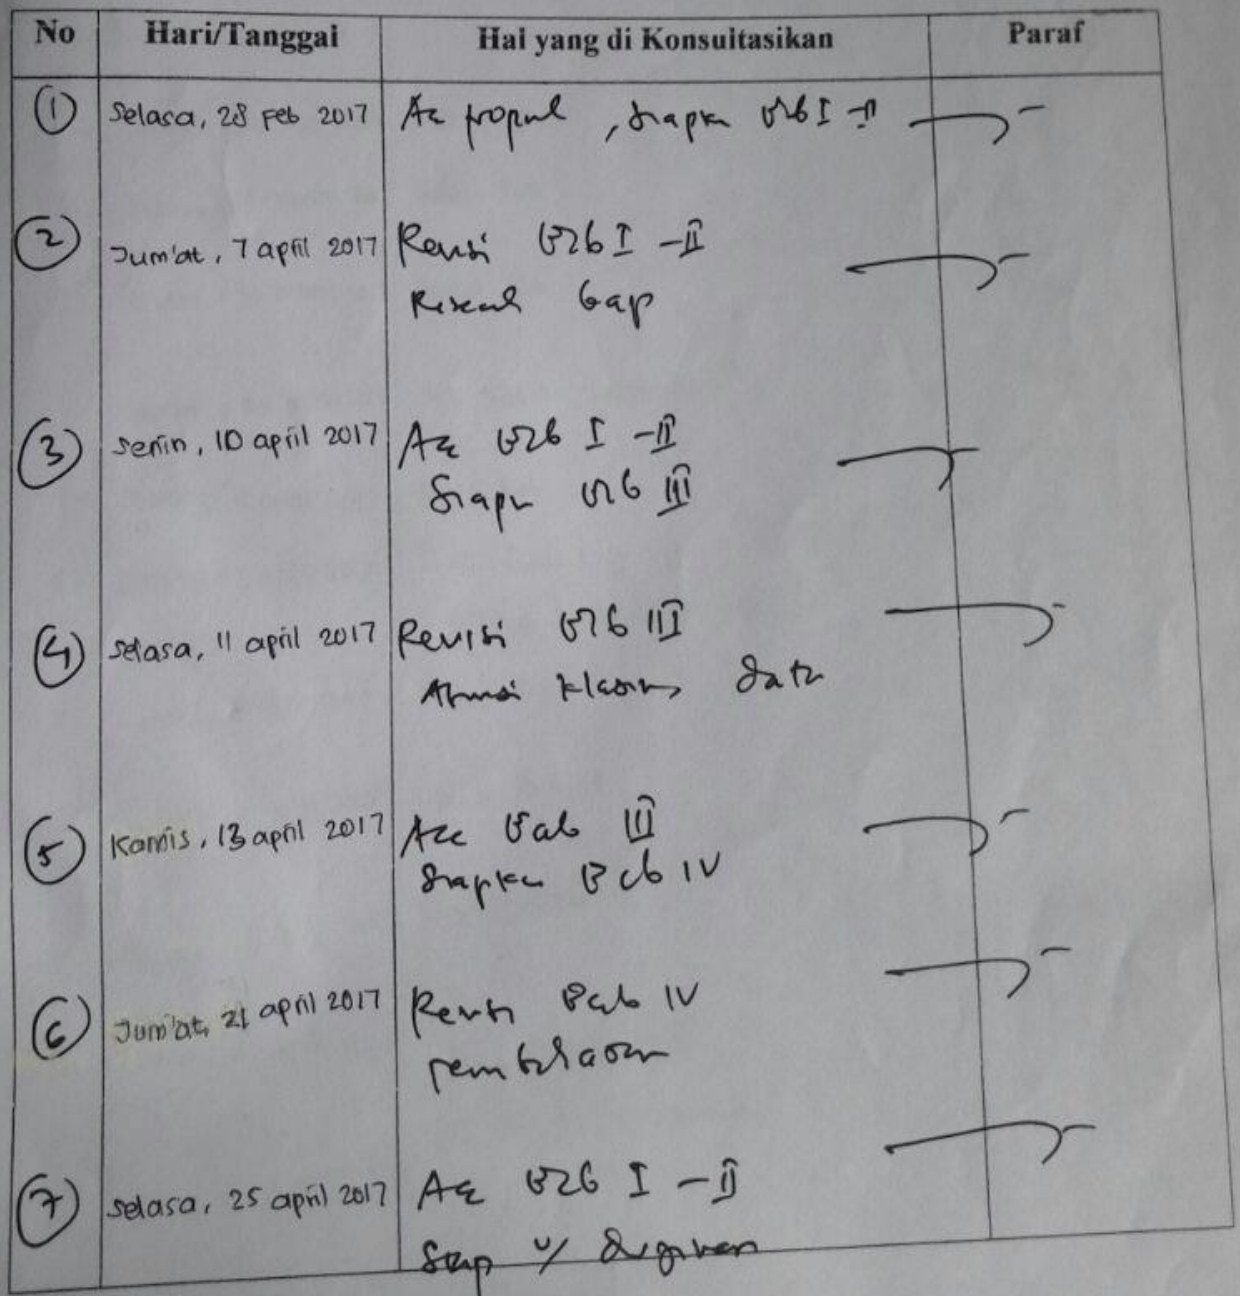 No Hari/Tanggal Hal yang di Konsultasikan Paraf
1 Selasa, 28 Feb 2017 Acc propsal, Siapkan Bab I - II
2 Jum'at, 7 april 2017 Revisi Bab I - II
Research Gap
3 Senin, 10 april 2017 Acc Bab I - II
Siapkan Bab III
4 Selasa, 11 april 2017 Revisi Bab III
data
5 Kamis, 13 april 2017 Acc Bab III
Siapkan Bab IV
6 Jum'at, 21 april 2017 Revisi Bab IV
pembahasan
7 Selasa, 25 april 2017 Acc Bab I - II
Siap u/